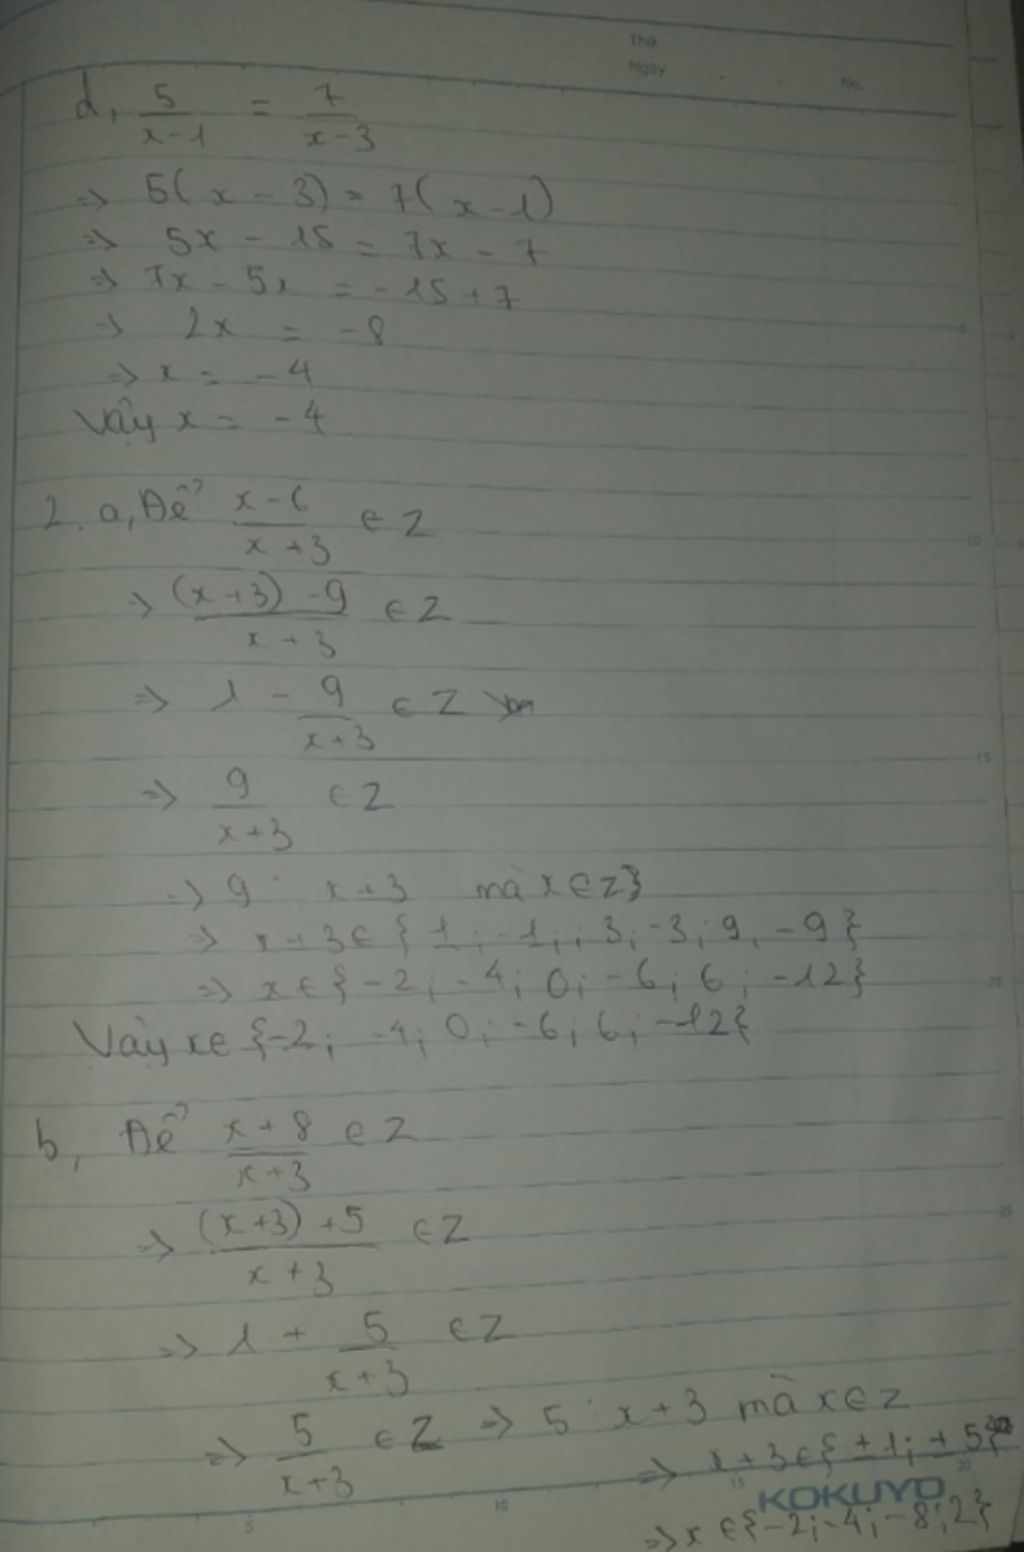 Thứ
Ngày
No.
d, 5/(x-1) = 7/(x-3)
=> 5(x - 3) = 7(x-1)
=> 5x - 15 = 7x - 7
=> 7x - 5x = -15+7
=> 2x = -8
=> x = -4
Vậy x = -4
2. a, Để (x-6)/(x+3) ∈ Z
=> ((x+3) -9)/(x+3) ∈ Z
=> 1 - 9/(x+3) ∈ Z
=> 9/(x+3) ∈ Z
=> 9 ⋮ x+3 mà x ∈ Z}
=> x+3 ∈ {1; -1; ; 3; -3; 9; -9}
=> x ∈ {-2; -4; 0; -6; 6; -12}
Vậy x ∈ {-2; -4; 0; -6; 6; -12}
b, Để (x+8)/(x+3) ∈ Z
=> ((x+3) +5)/(x+3) ∈ Z
=> 1 + 5/(x+3) ∈ Z
=> 5/(x+3) ∈ Z => 5 ⋮ x+3 mà x ∈ Z
=> x+3 ∈ {±1; ±5}
=> x ∈ {-2; -4; -8; 2}
5 10 15 20
KOKUYO